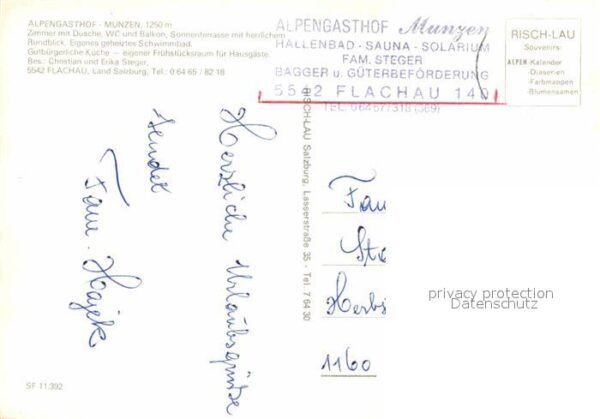 ALPENGASTHOF - MUNZEN, 1250 m
Zimmer mit Dusche, WC und Balkon, Sonnenterrasse mit herrlichem
Rundblick. Eigenes geheiztes Schwimmbad.
Gutbürgerliche Küche — eigener Frühstücksraum für Hausgäste.
Bes.: Christian und Erika Steger,
5542 FLACHAU, Land Salzburg, Tel.: 0 64 65 / 82 18
ALPENGASTHOF Munzen
HALLENBAD - SAUNA - SOLARIUM
FAM. STEGER
BAGGER u. GÜTERBEFÖRDERUNG
5542 FLACHAU 140
TEL. 06457/318 (369)
RISCH-LAU
Souvenirs:
ALPEN-Kalender
-Diaserien
-Farbmappen
-Blumensamen
Herzliche Urlaubsgrüße
sendet
Fam. Hajek
RISCH-LAU Salzburg, Lasserstraße 35 - Tel. 7 64 30
Fam
Ste
Herbs
1160
privacy protection
Datenschutz
SF 11.392